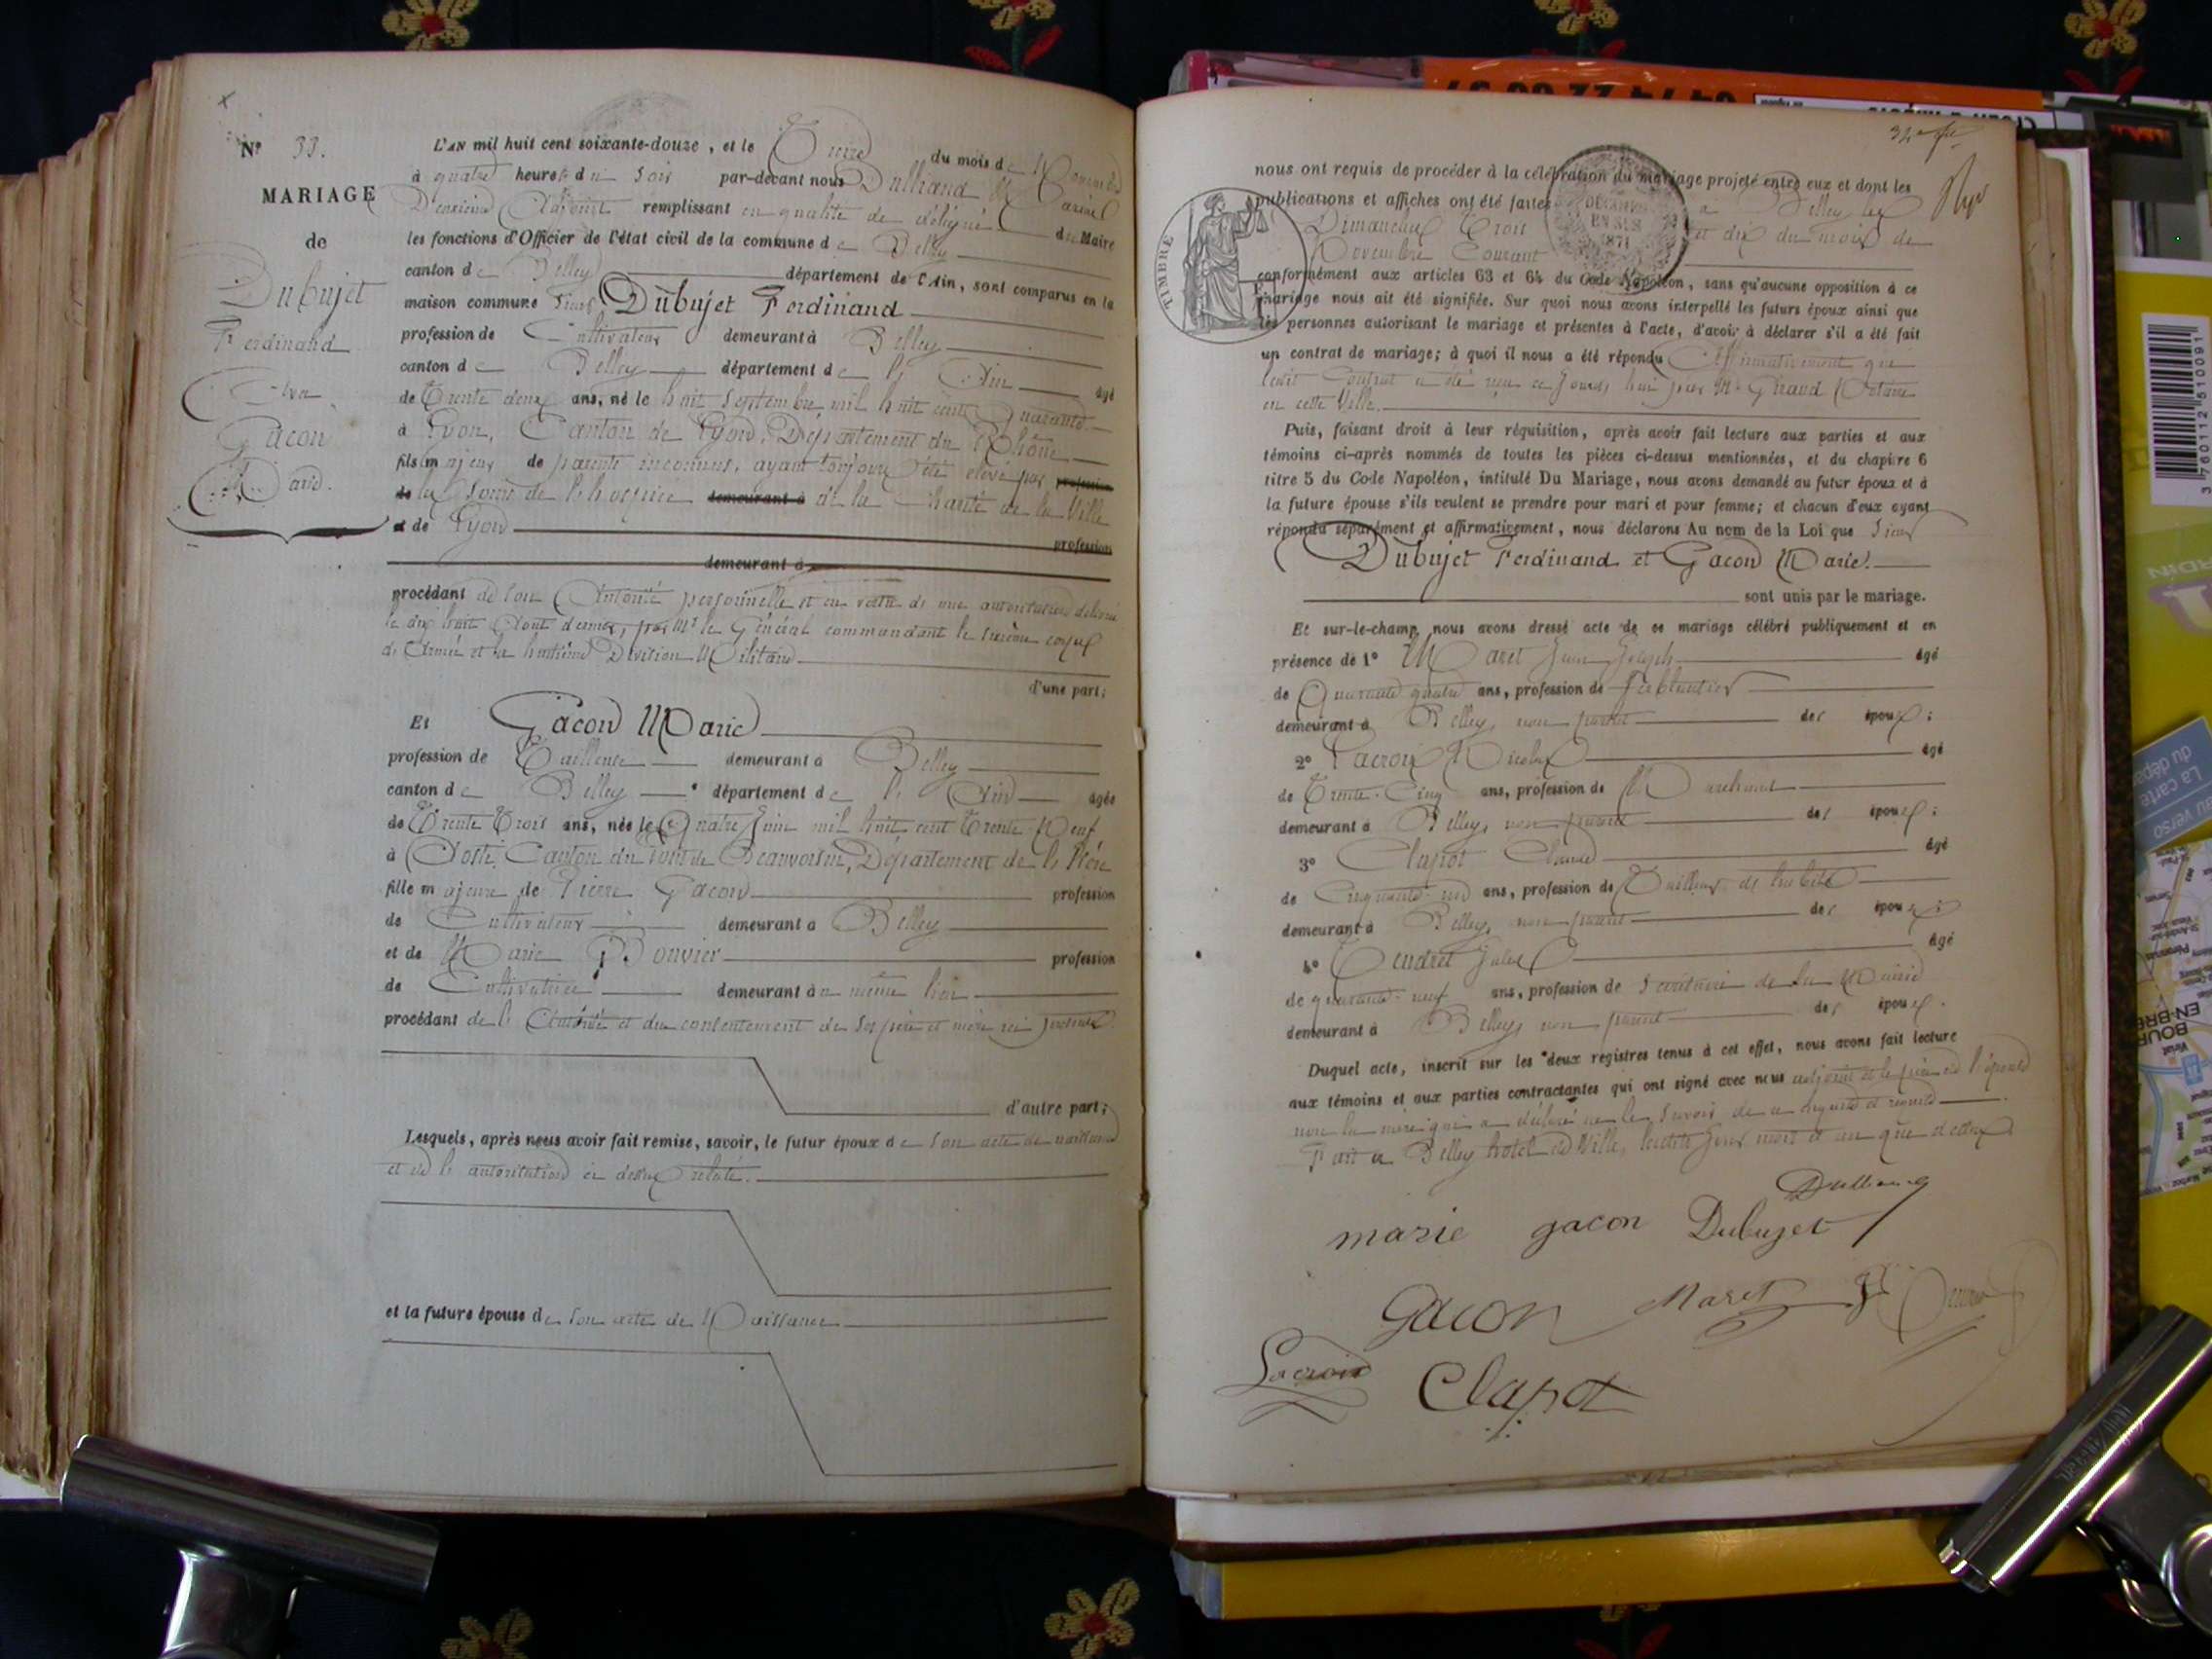 N° 33.
MARIAGE
de
Dubujet
Ferdinand
Avec
Gacon
Marie.
L'AN mil huit cent soixante-douze, et le Treize du mois de Novembre
à quatre heures du Soir par-devant nous Dulliand
Deuxième Adjoint remplissant en qualité de délégué du Maire
les fonctions d'Officier de l'état civil de la commune de Belley
canton de Belley département de l'Ain, sont comparus en la
maison commune Sieur Dubujet Ferdinand
profession de Cultivateur demeurant à Belley
canton de Belley département de l'Ain âgé
de Trente deux ans, né le huit Septembre mil huit cent Quarante
à Lyon, Canton de Lyon, Département du Rhône
fils majeur de parents inconnus, ayant toujours été élevé par profession
de les Soins de l'hospice demeurant à de la Charité de la Ville
et de Lyon
profession
demeurant à
procédant de son Autorité personnelle et en vertu de une autorisation délivrée
le dix huit Août dernier, par Mr le Général commandant le corps
de Armée et la huitième Division Militaire
d'une part;
Et Gacon Marie
profession de Tailleuse demeurant à Belley
canton de Belley département de l'Ain âgée
de Trente Trois ans, née le Quatre Juin mil huit cent Trente Neuf
à Aoste, Canton du Pont de Beauvoisin, Département de l'Isère
fille majeure de Pierre Gacon profession
de Cultivateur demeurant à Belley
et de Marie Bouvier profession
de Cultivatrice demeurant à u même lieu
procédant de l'Autorité et du consentement de ses père et mère ici présents
d'autre part;
Lesquels, après nous avoir fait remise, savoir, le futur époux de Son acte de naissance
et de l'autorisation ci dessus relaté.
et la future épouse de Son acte de Naissance
34e
nous ont requis de procéder à la célébration du mariage projeté entre eux et dont les
publications et affiches ont été faites à Belley les
Dimanches Trois et dix du mois de
Novembre Courant
TIMBRE
1871
conformément aux articles 63 et 64 du Code Napoléon, sans qu'aucune opposition à ce
mariage nous ait été signifiée. Sur quoi nous avons interpellé les futurs époux ainsi que
les personnes autorisant le mariage et présentes à l'acte, d'avoir à déclarer s'il a été fait
un contrat de mariage; à quoi il nous a été répondu Affirmativement que
ledit Contrat a été reçu ce jourd'hui par Me Giraud Notaire
en cette Ville.
Puis, faisant droit à leur réquisition, après avoir fait lecture aux parties et aux
témoins ci-après nommés de toutes les pièces ci-dessus mentionnées, et du chapitre 6
titre 5 du Code Napoléon, intitulé Du Mariage, nous avons demandé au futur époux et à
la future épouse s'ils veulent se prendre pour mari et pour femme; et chacun d'eux ayant
répondu séparément et affirmativement, nous déclarons Au nom de la Loi que Sieur
Dubujet Ferdinand et Gacon Marie.
sont unis par le mariage.
Et sur-le-champ nous avons dressé acte de ce mariage célébré publiquement et en
présence de 1° Maret Jean Joseph âgé
de Quarante quatre ans, profession de Ferblantier
demeurant à Belley, non parent des époux;
2° Lacroix Nicolas âgé
de Trente Cinq ans, profession de Marchand
demeurant à Belley, non parent des époux;
3° Clapot Claude âgé
de Cinquante ans, profession de Tailleur de habits
demeurant à Belley, non parent des époux;
4° Tendret Jules âgé
de quarante-neuf ans, profession de Secrétaire de la Mairie
demeurant à Belley, non parent des époux.
Duquel acte, inscrit sur les deux registres tenus à cet effet, nous avons fait lecture
aux témoins et aux parties contractantes qui ont signé avec nous adjoint et le père de l'épouse
non la mère qui a déclaré ne le Savoir, de ce Enquise et requise
Fait à Belley hotel de Ville, lesdits jour mois et an que dessus
Dulliand
marie gacon Dubujet
Gacon Maret
Lacroix Clapot
3 760112 510091
La carte
du dépa
au verso
EN-BRE
BOUR